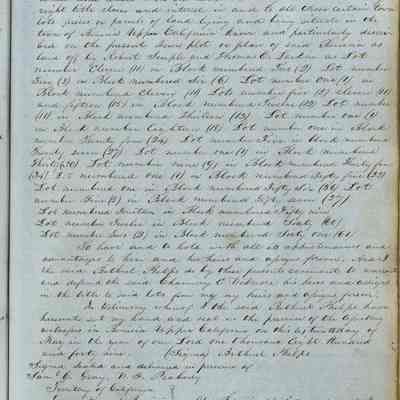 right title claim and interest in and to all those certain town
lots pieces or parcels of land lying and being situate in the
town of Benicia Upper California known and particularly descri-
bed on the present Town plot or plan of said Benicia as
laid off by Robert Semple and Thomas O. Larkin as Lot
number Eleven (11) in Block numbered Two (2) Lot number
Two (2) in Block numbered Six (6) Lot number One (1) in
Block numbered Eleven (11) Lots number five (5) eleven (11)
and fifteen (15) in Block numbered Twelve (12) Lot number
(11) in Block numbered Thirteen (13) Lot number one (1)
in Block number Eighteen (18) Lot number one in Block
number Twenty four (24) Lot number Five in block number
Twenty Seven (27) Lot number one (1) in Block numbered
Thirty (30) Lot number nine (9) in Block numbered Thirty four
(34) Lot numbered one (1) in Block numbered Fifty five (55)
Lot numbered one in Block numbered Fifty Six (56) Lot
number Two (2) in Block numbered Fifty seven (57)
Lot numbered Fourteen in Block numbered Fifty nine
Lot number Twelve in Block numbered Sixty (60)
Lot number Two (2) in Block number Sixty one (61)
To have and to hold with all its appurtenances and
advantages to him and his heirs and assigns forever. And I
the said Bethuel Phelps do by these presents covenant to warrant
and defend the said Chauncey C. his heirs and assigns
in the title to said Lots from my heirs and assigns forever.
In testimony whereof I the said Bethuel Phelps have
hereunto set my hand and seal in the presence of the
witnesses in Benicia Upper California on this day of
May in the year of our Lord one thousand eight hundred
and forty nine. (Signed) Bethuel Phelps
Signed sealed and delivered in presence of
Sam. C. Gray, W. F. Peabody
Territory of California